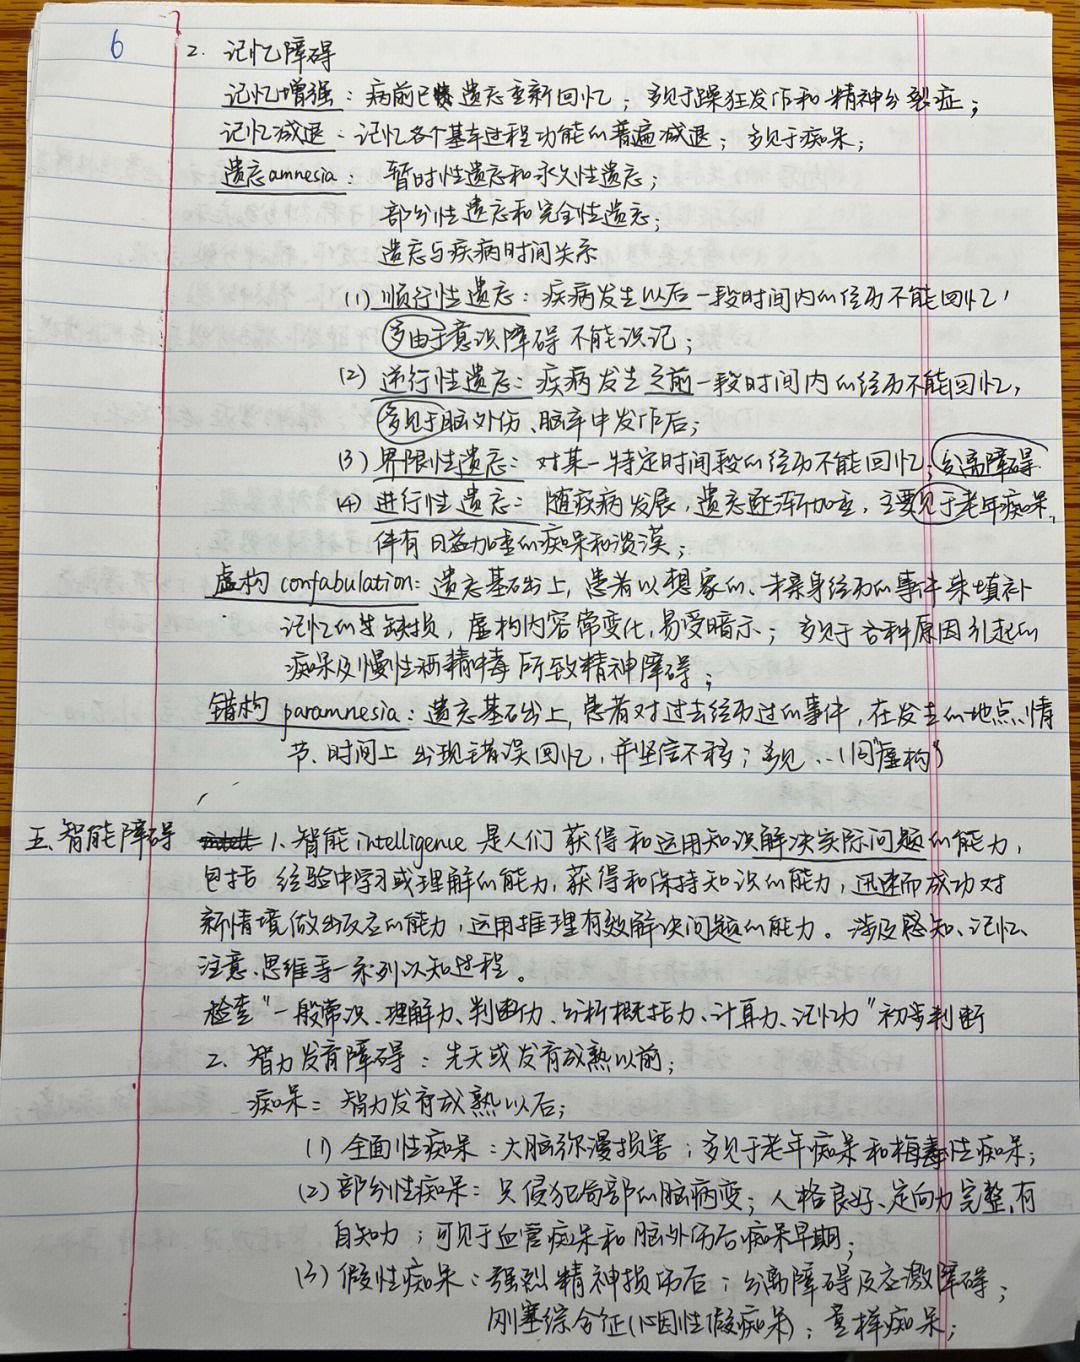 6
2. 记忆障碍
记忆增强：病前已遗忘重新回忆；多见于躁狂发作和精神分裂症；
记忆减退：记忆各个基本过程功能的普遍减退；多见于痴呆；
遗忘amnesia：暂时性遗忘和永久性遗忘；
部分性遗忘和完全性遗忘；
遗忘与疾病时间关系
(1) 顺行性遗忘：疾病发生以后一段时间内的经历不能回忆，
多由于意识障碍不能识记；
(2) 逆行性遗忘：疾病发生之前一段时间内的经历不能回忆，
多见于脑外伤、脑卒中发作后；
(3) 界限性遗忘：对某一特定时间段的经历不能回忆；分离障碍
(4) 进行性遗忘：随疾病发展，遗忘逐渐加重，主要见于老年痴呆，
伴有日益加重的痴呆和淡漠；
虚构 confabulation：遗忘基础上，患者以想象的、未亲身经历的事件来填补
记忆的缺损，虚构内容常变化，易受暗示；多见于各种原因引起的
痴呆及慢性酒精中毒所致精神障碍；
错构 paramnesia：遗忘基础上，患者对过去经历过的事件，在发生的地点、情
节、时间上出现错误回忆，并坚信不移；多见…(同"虚构")
五、智能障碍 1. 智能 intelligence 是人们获得和运用知识解决实际问题的能力，
包括 经验中学习或理解的能力，获得和保持知识的能力，迅速而成功对
新情境做出反应的能力，运用推理有效解决问题的能力。涉及感知、记忆、
注意、思维等一系列认知过程。
检查"一般常识、理解力、判断力、分析概括力、计算力、记忆力"初步判断
2. 智力发育障碍：先天或发育成熟以前；
痴呆：智力发育成熟以后；
(1) 全面性痴呆：大脑弥漫损害；多见于老年痴呆和梅毒性痴呆；
(2) 部分性痴呆：只侵犯局部的脑病变；人格良好、定向力完整、有
自知力；可见于血管痴呆和脑外伤后痴呆早期；
(3) 假性痴呆：强烈精神损伤后；分离障碍及应激障碍；
刚塞综合征(心因性假痴呆)；童样痴呆；